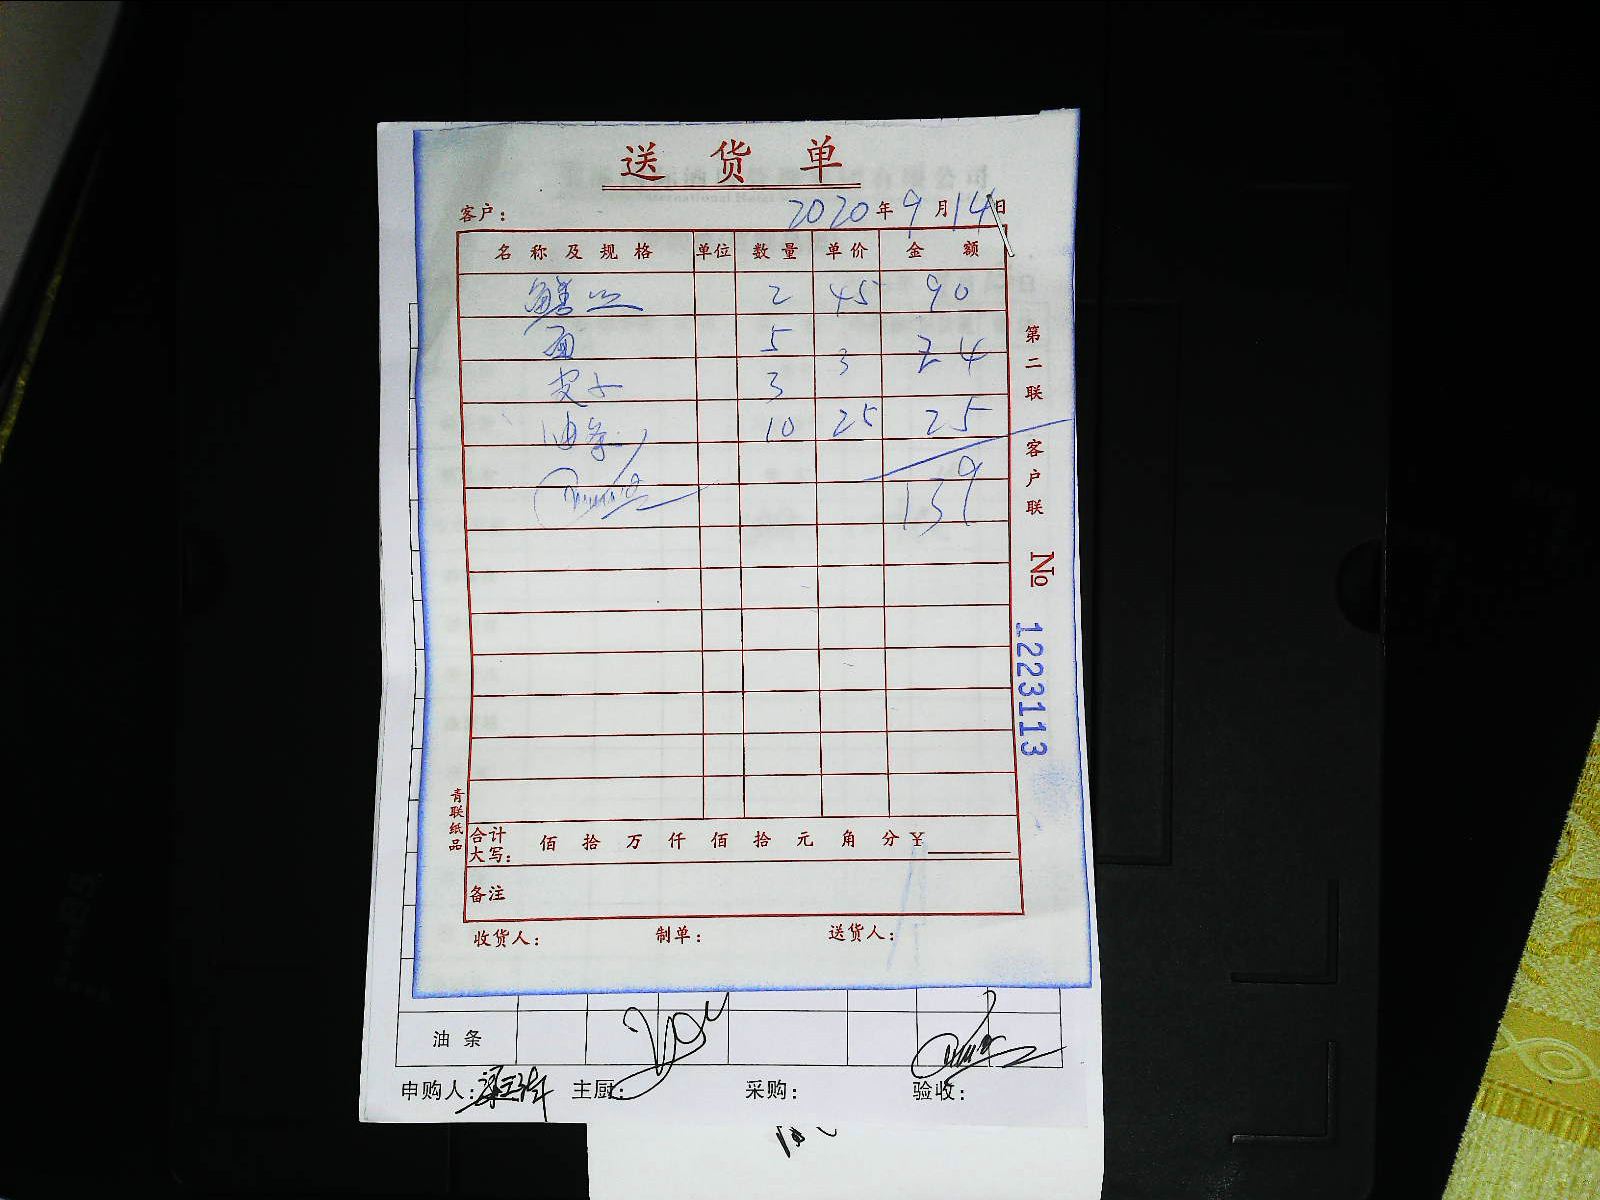 送货单
客户: 2020年9月14日
名称及规格 单位 数量 单价 金额
鳝丝 2 45 90
面 5 3 24
皮子 3
油条 10 25 25
139
第二联 客户联
№ 1223113
青联纸品
合计大写: 佰 拾 万 仟 佰 拾 元 角 分 ¥
备注
收货人: 制单: 送货人:
油条
申购人: 主厨: 采购: 验收: